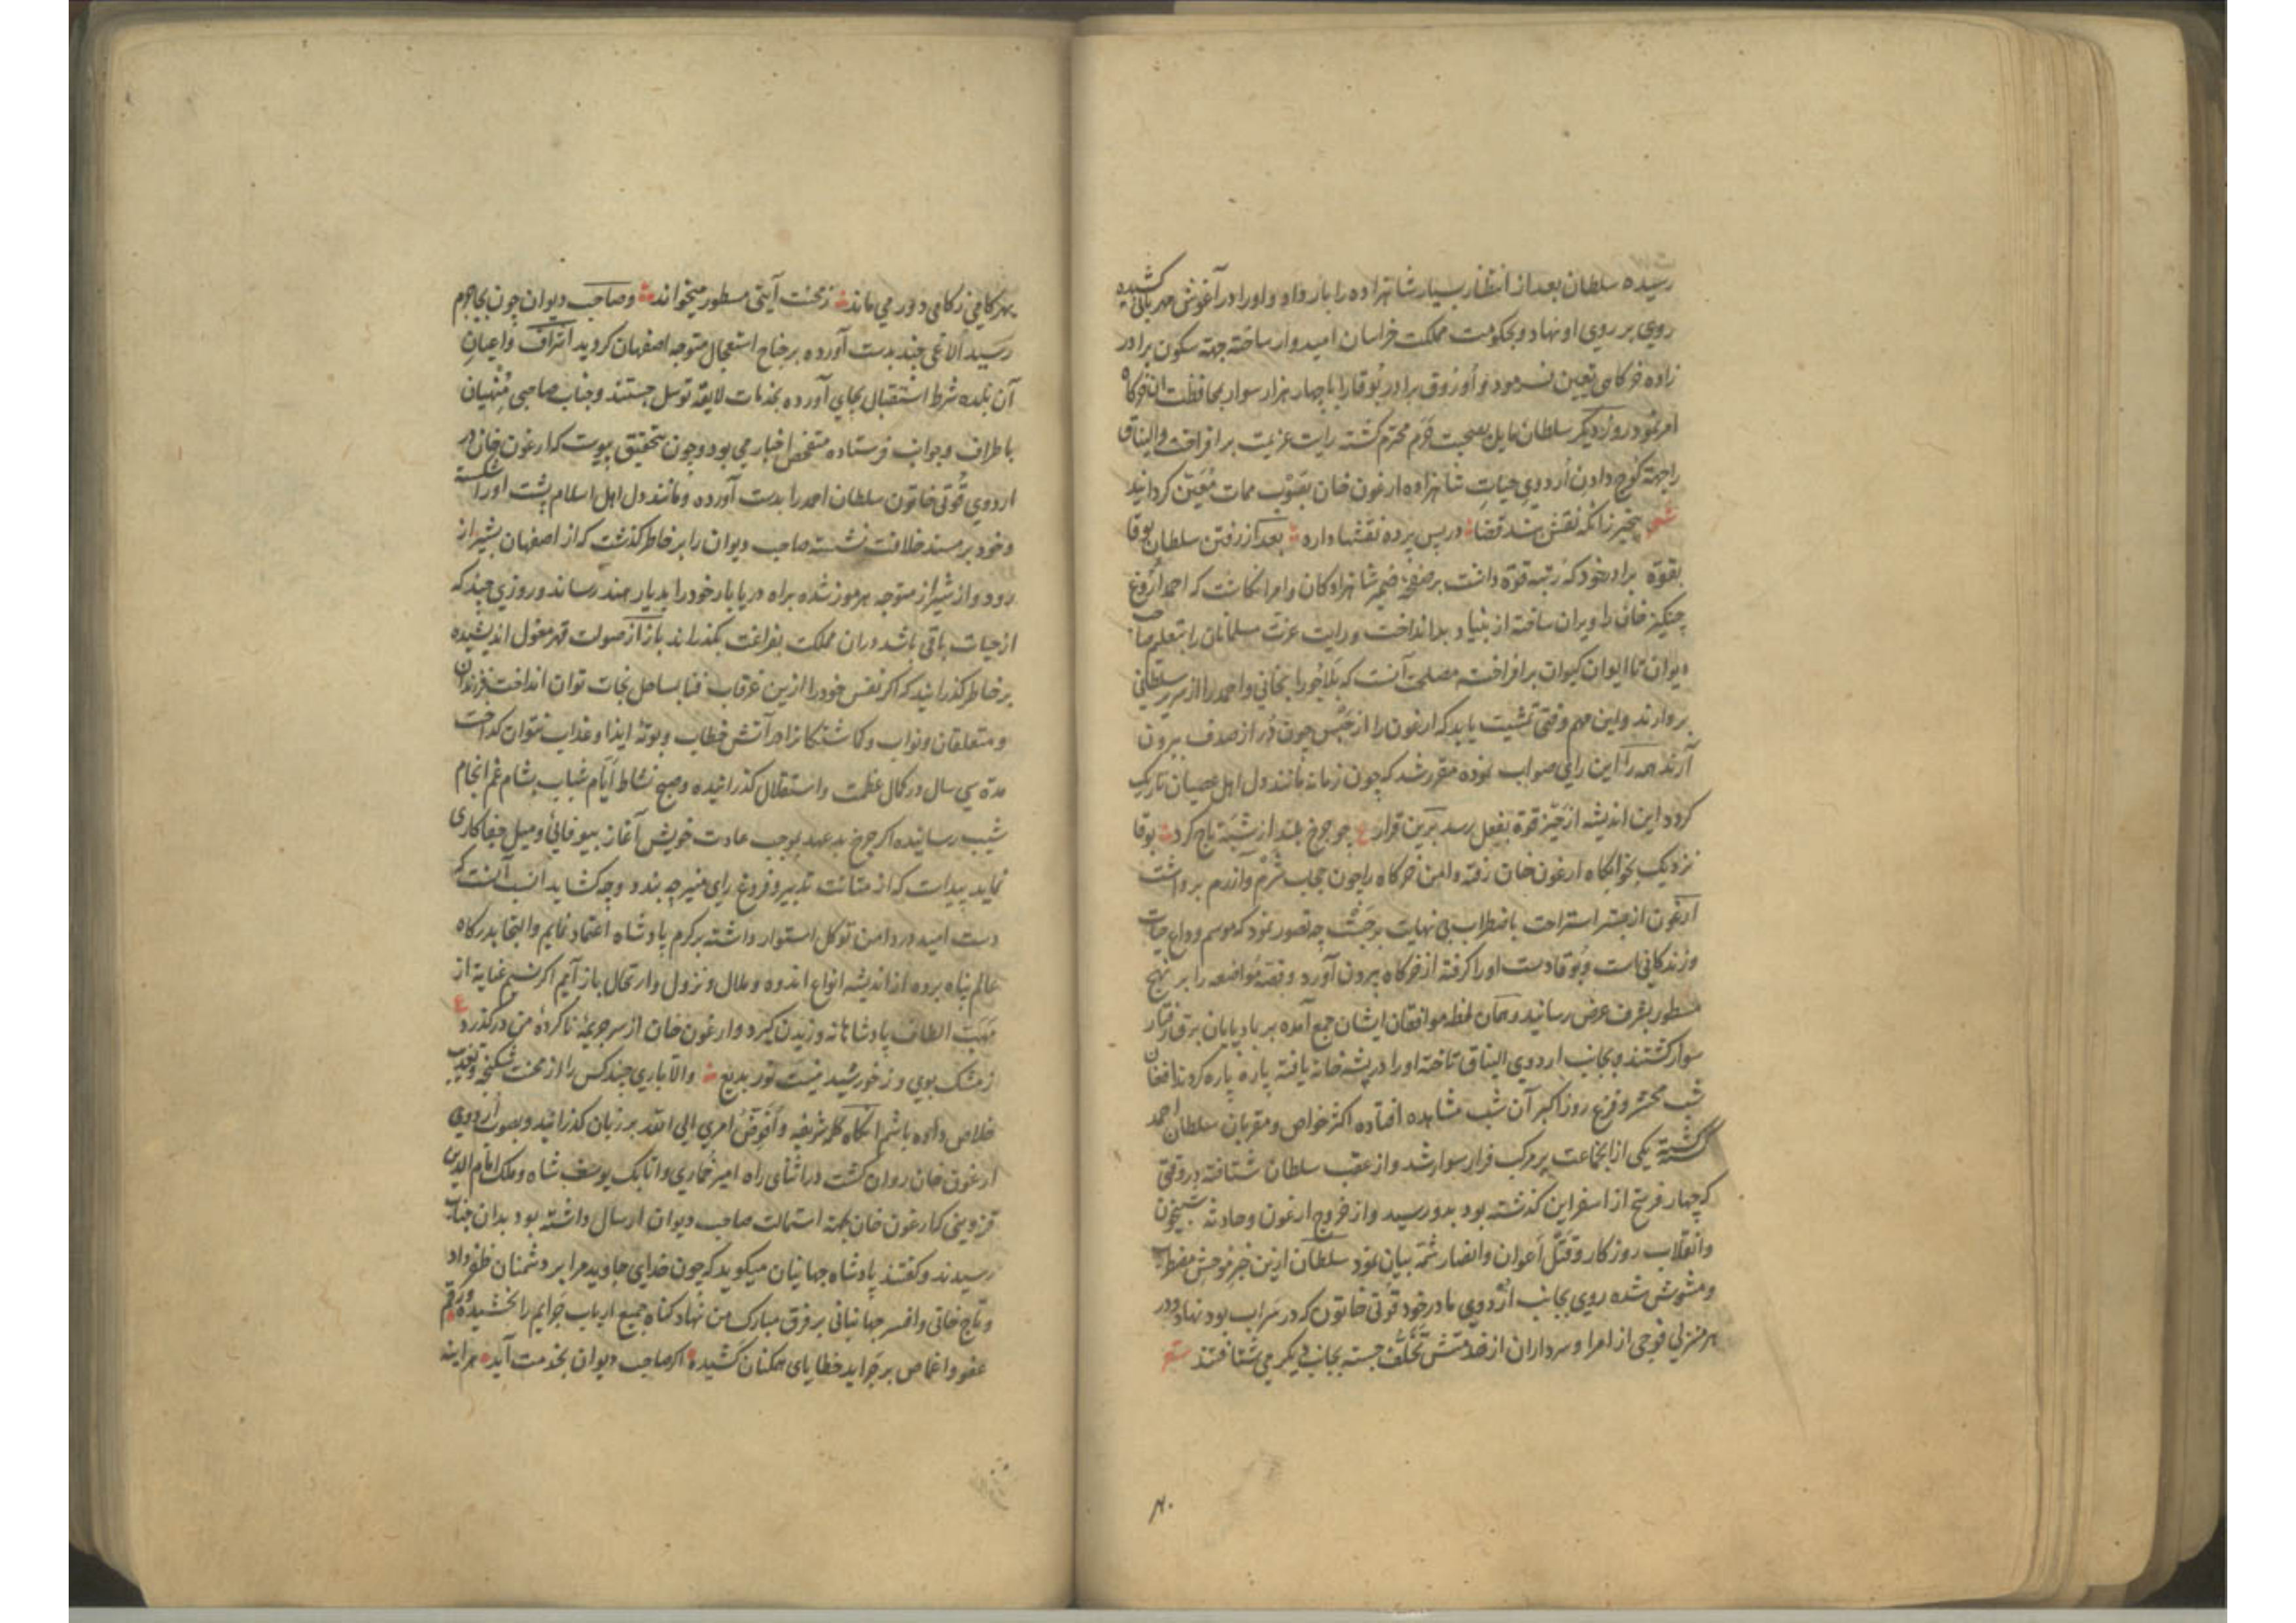 رسیده سلطان بعد از انتظار بسیار شاهزاده را بار داد و او را در آغوش مهربانی کشیده
روی بر روی او نهاد و بحکومت مملکت خراسان امیدوار ساخته جهة سکون برادر
زاده خرکاهی تعیین فرمود و اوزوق برادر بوقا را با چهار هزار سوار بمحافظت آن خرکاه
امر نمود روز دیکر سلطان مایل بصحبت حرم محترم کشته رایت عزیمت برافراخت و الیناق
را جهة کوچ دادن اردوی حیات شاهزاده ارغون خان بصوب ممات معین کردانید
شعر بیخبر زانکه نقش بند قضا در پس پرده نقشها دارد بعد از رفتن سلطان بوقا
بقوة برادر خود که رتبه قوة داشت بر صفحه ضمیر شاهزادکان و امرا نکاشت که احمد اروغ
چنکیز خان را ویران ساخته از بنیاد بر انداخت و رایت عزت مسلمانان را بتعلیم صاحب
دیوان تا ایوان کیوان برافراخت مصلحت آنست که بلاچو را بخانی و احمد را از سریر سلطانی
بردارند و این مهم وقتی تمشیت یابد که ارغون را از حبس چون در از صدف بیرون
آرند همه را این رای صواب نموده مقرر شد که چون زمانه مانند دل اهل عصیان تاریک
کردد این اندیشه از حیز قوة بفعل رسد برین قرار ع چو چرخ بلند از شبه تاج کرد بوقا
نزدیک بخوابکاه ارغون خان رفته دامن خرکاه را چون حجاب شرم و آزرم برداشت
ارغون از بستر استراحت باضطراب بی نهایت برجست چه تصور نمود که موسم وداع حیات
و زندکانی است و بوقا دست او را کرفته از خرکاه بیرون آورد و قصه مواضعه را بر نهج
مسطور بشرف عرض رسانید و همان لحظه موافقان ایشان جمع آمده بر بادپایان برق رفتار
سوار کشتند و بجانب اردوی الیناق تاخته او را در پشه خانه یافته پاره پاره کردند افغان
شب محشر و فزع روز اکبر آن شب مشاهده افتاده اکثر خواص و مقربان سلطان احمد
کشته یکی از انجماعت بر مرکب فرار سوار شد و از عقب سلطان شتافته در وقتی
که چهار فرسخ از اسفراین کذشته بود بدو رسید و از خروج ارغون و حادثه شبیخون
و انقلاب روزکار و قتل اعوان و انصار شمه بیان نمود سلطان ازین خبر موحش مضطرب
و مشوش شده روی بجانب اردوی مادر خود قوتی خاتون که در سراب بود نهاد و در
هر منزلی فوجی از امرا و سرداران از خدمتش تخلف جسته بجانب دیکر می شتافتند شعر
بهر کامی ز کامی دور می ماند ز محنت آیتی مسطور میخواند و صاحب دیوان چون بجاجرم
رسید الاغی چند بدست آورده بر جناح استعجال متوجه اصفهان کردید اشراف و اعیان
آن بلده شرط استقبال بجای آورده بخدمات لایقه توسل جستند و جناب صاحبی منهیان
باطراف و جوانب فرستاده متفحص اخبار می بود و چون بتحقیق پیوست که ارغون خان در
اردوی قوتی خاتون سلطان احمد را بدست آورده و مانند دل اهل اسلام پشت او را شکسته
و خود بر مسند خلافت نشست صاحب دیوان را بر خاطر کذشت که از اصفهان بشیراز
رود و از شیراز متوجه هرموز شده براه دریا بار خود را بدیار هند رساند و روزی چند که
از حیات باقی باشد در ان مملکت بفراغت بکذراند باز از صولت قهر مغول اندیشیده
بر خاطر کذرانید که اکر نفس خود را ازین غرقاب فنا بساحل نجات توان انداخت فرزندان
و متعلقان و نواب و کماشتکان را در آتش خطاب و بوته ایذا و عذاب نتوان کداخت
مدة سی سال در کمال عظمت و استقلال کذرانیده و صبح نشاط ایام شباب بشام غم انجام
شیب رسانیده اکر چرخ بد عهد بموجب عادت خویش آغاز بیوفائی و میل جفاکاری
نماید پیداست که از متانت تدبیر و فروغ رای منیر چه بندد و چه کشاید انسب آنست که
دست امید در دامن توکل استوار داشته بر کرم پادشاه اعتماد نمایم و التجا بدرکاه
عالم پناه برده از اندیشه انواع اندوه و ملال و نزول و ارتحال باز آیم اکر نسیم عنایة از
مهب الطاف پادشاهانه وزیدن کیرد و ارغون خان از سر جریمه ناکرده من درکذرد ع
ز مشک بوی و ز خورشید نیست نور بدیع والا باری چند کس را از محنت شکنجه و تعذیب
خلاص داده باشم آنکاه کلمه شریفه وافوض امری الی الله بر زبان کذرانید و بصوب اردوی
ارغون خان روان کشت در اثنای راه امیر خماری و اتابک یوسف شاه و ملک امام الدین
قزوینی که ارغون خان بجهة استمالت صاحب دیوان ارسال داشته بود بدان جناب
رسیدند و کفتند پادشاه جهانیان میکوید که چون خدای جاوید مرا بر دشمنان ظفر داد
و تاج خانی و افسر جهانبانی بر فرق مبارک من نهاد کناه جمیع ارباب جرایم را بخشیده و رقم
عفو و اغماض بر جراید خطایای همکنان کشیده اکر صاحب دیوان بخدمت آید هر اینه